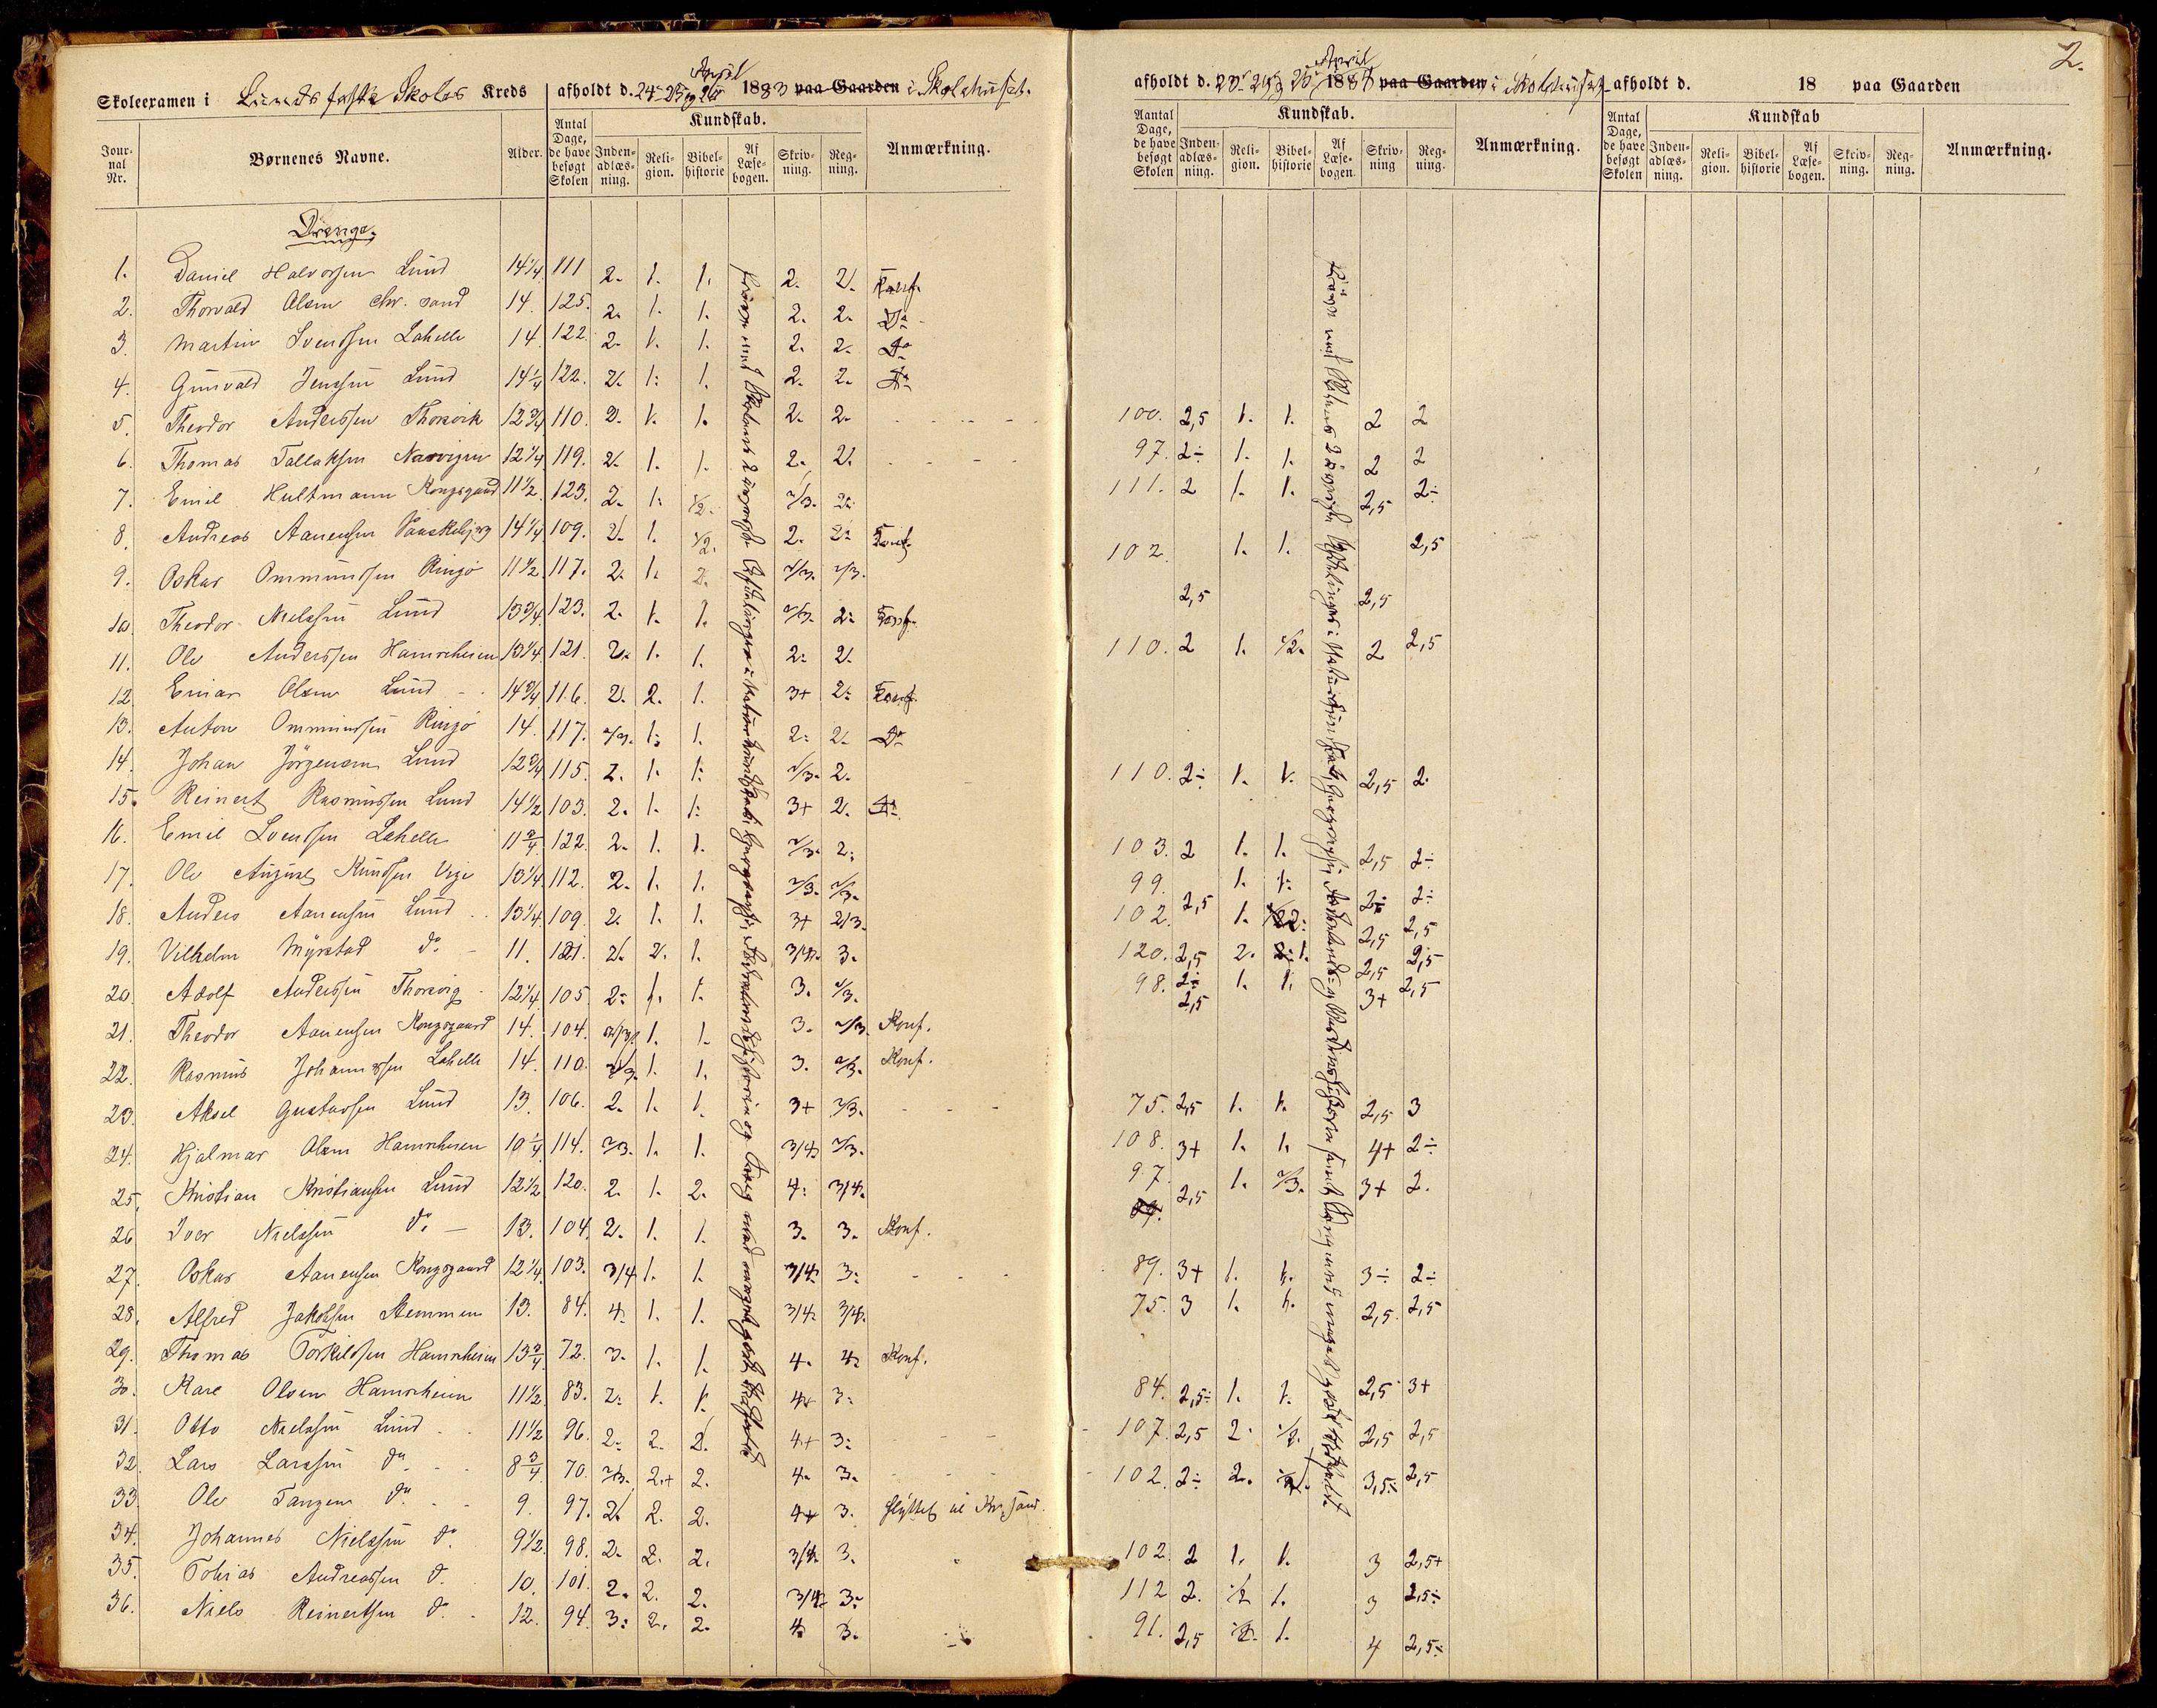 2.
Skoleexamen i Lunds faste Skoles Kreds afholdt d. 24-25 og 26 April 1883 paa Gaarden i Skolehuset.
Jour-nal Nr. Børnenes Navne. Alder. Antal Dage, de have besøgt Skolen Kundskab. Inden-adlæs-ning. Reli-gion. Bibel-historie Af Læse-bogen. Skriv-ning. Reg-ning. Anmærkning.
Drenge.
1. Daniel Halvorsen Lund 14 1/4. 111 2. 1. 1. 2. 2. Konf.
2. Thorvald Olsen Chr. sand 14. 125. 2. 1. 1. 2. 2. Do
3. Martin Svendsen Lahelle 14 122. 2. 1. 1. 2. 2. Do
4. Gunvald Jenssen Lund 14 1/4 122. 2. 1: 1. 2. 2. Do
5. Theodor Anderssen Thorsvik 12 3/4 110. 2. 1. 1. 2. 2.
6. Thomas Tallaksen Narvigen 12 1/4 119. 2. 1. 1. 2. 2.
7. Emil Hultmann Kongsgaard 11 1/2. 123. 2. 1: 1/2. 2/3. 2:
8. Andreas Aanensen 14 1/4 109. 2. 1. 1/2. 2. 2: Konf.
9. Oskar Ommundsen Ringø 11 1/2. 117. 2. 1. 2. 2/3. 2/3.
10. Theodor Nielssen Lund 13 3/4. 123. 2. 1. 1. 2/3. 2: Konf.
11. Ole Anderssen Hamreheien 13 1/4 121. 2. 1. 1. 2: 2.
12. Einar Olsen Lund 14 3/4 116. 2. 2. 1. 3+ 2: Konf.
13. Anton Ommundsen Ringø 14. 117. 2/3. 1: 1. 2: 2. Do
14. Johan Jörgensen Lund 12 3/4 115. 2. 1. 1: 2/3. 2.
15. Reinert Rasmussen Lund 14 1/2 103. 2. 1. 1: 3+ 2. Do
16. Emil Svendsen Lahelle 11 3/4 122. 2. 1. 1. 2/3. 2:
17. Ole August Knudsen Vige 10 1/4 112. 2. 1. 1. 2/3. 2/3.
18. Anders Aanensen Lund 13 1/4. 109. 2. 1. 1. 3+ 2/3.
19. Vilhelm Myrstad do 11. 121. 2. 2. 1. 3/4. 3.
20. Adolf Anderssen Thorsvig 12 1/4. 105. 2: 1. 1. 3. 2/3.
21. Theodor Aanensen Kongsgaard 14. 104. 2/3. 1. 1. 3. 2/3. Konf.
22. Rasmus Johannessen Lahelle 14. 110. 2/3. 1. 1. 3. 2/3. Konf.
23. Aksel Gustavsen Lund 13. 106. 2. 1. 1. 3+ 2/3.
24. Hjalmar Olsen Hamreheien 10 1/4. 114. 2/3. 1. 1. 3/4 2/3.
25. Kristian Kristiansen Lund 12 1/2 120. 2. 1. 2. 4: 3/4.
26 Iver Nielssen do 13. 104. 2. 1. 1. 3. 3. Konf.
27. Oskar Aanensen Kongsgaard 12 1/4. 103. 3/4 1. 1. 3/4: 3:
28. Alfred Jakobsen Stemmen 13. 84. 4. 1. 1. 3/4. 3/4.
29. Thomas Torkildsen Hamreheien 13 3/4. 72. 3. 1. 1. 4. 4. Konf.
30. Karl Olsen Hamreheien 11 1/2. 83. 2. 1. 1. 4+ 3:
31. Otto Nielssen Lund 11 1/2 96. 2: 2. 2. 4+ 3:
32. Lars Larssen do 8 3/4. 70. 2/3. 2+ 2. 4. 3.
33. Ole Tangen do 9. 97. 2. 2. 2. 4+ 3. flyttet til Kr.sand.
34. Johannes Nielssen do 9 1/2. 98. 2. 2. 2. 3/4. 3.
35. Tobias Andreassen do 10. 101. 2. 2. 2. 3/4. 3:
36. Niels Reinertsen do 12. 94. 3: 2. 2. 4. 3.
afholdt d. 23 24 og 25 April 1884 paa Gaarden i Skolehuset
Aantal Dage, de have besøgt Skolen Kundskab. Inden-adlæs-ning. Reli-gion. Bibel-historie Af Læse-bogen. Skriv-ning Reg-ning. Anmærkning.
100. 2,5 1. 1. 2 2
97. 2÷ 1. 1. 2 2
111. 2 1. 1. 2,5 2÷
102. 2,5 1. 1. 2,5 2,5
110. 2 1. 1/2. 2 2,5
110. 2÷ 1. 1. 2,5 2.
103. 2 1. 1. 2,5 2÷
99. 2,5 1. 1: 2÷ 2÷
102. 1. 2: 2,5 2,5
120. 2,5 2. 1. 2,5 2,5
98. 2,5 1. 1. 3+ 2,5
75. 2,5 1. 1. 2,5 3
108. 3+ 1. 1. 4+ 2÷
97. 2,5 1. 2/3. 3+ 2.
89. 3+ 1. 1. 3÷ 2÷
75. 3 1. 1. 2,5. 2,5
84. 2,5÷ 1. 1. 2,5 3+
107. 2,5 2. 1/2. 2,5 2,5
102. 2÷ 2. 3,5÷ 2,5
102. 2 1. 1. 3 2,5+
112 2. 1/2 1. 3 2,5÷
91. 2,5 1/2. 1. 4 2,5÷
afholdt d. 18 paa Gaarden
Antal Dage, de have besøgt Skolen Kundskab Inden-adlæs-ning. Reli-gion. Bibel-historie Af Læse-bogen. Skriv-ning. Reg-ning. Anmærkning.